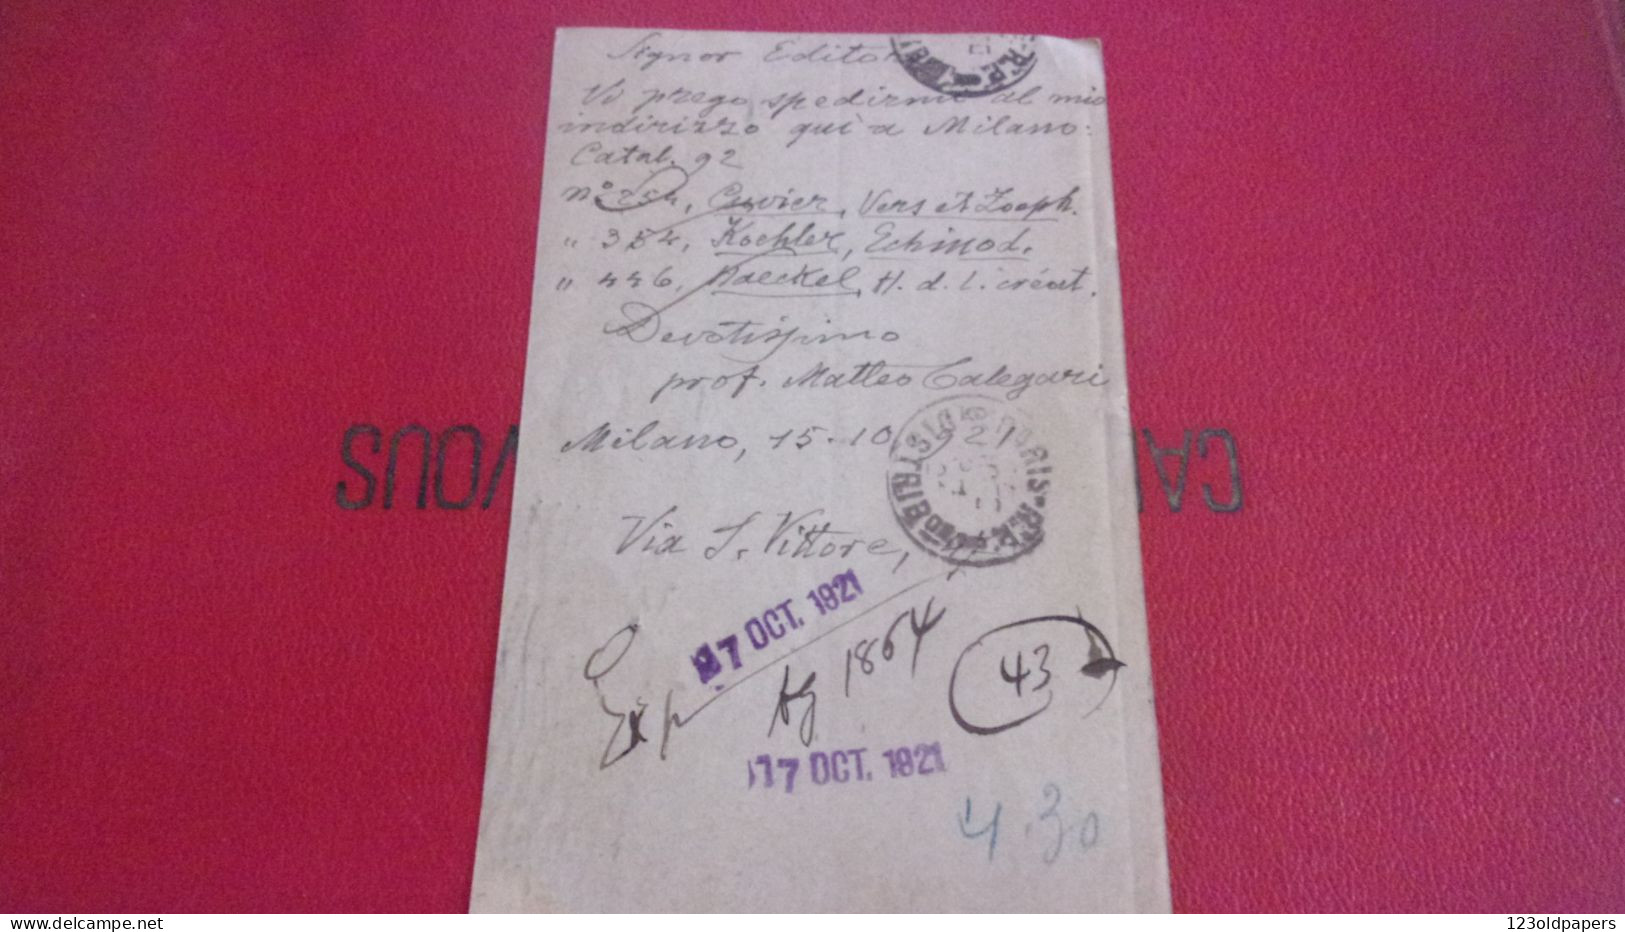 Signor Editore
Vi prego spedirmi al mio
indirizzo qui a Milano:
Catal. 92
N° 254, Cuvier, Vers et Zooph.
" 354, Koehler, Echinod.
" 446, Haeckel, H. d. l. créat.
Devotissimo
prof. Matteo Calegari
Milano, 15-10 921
Via S. Vittore,
7 OCT. 1921
Exp
1864
43
17 OCT. 1921
4.30
PARIS
DISTRIBUTION
VOUS
CA
delcampe.net
123oldpapers